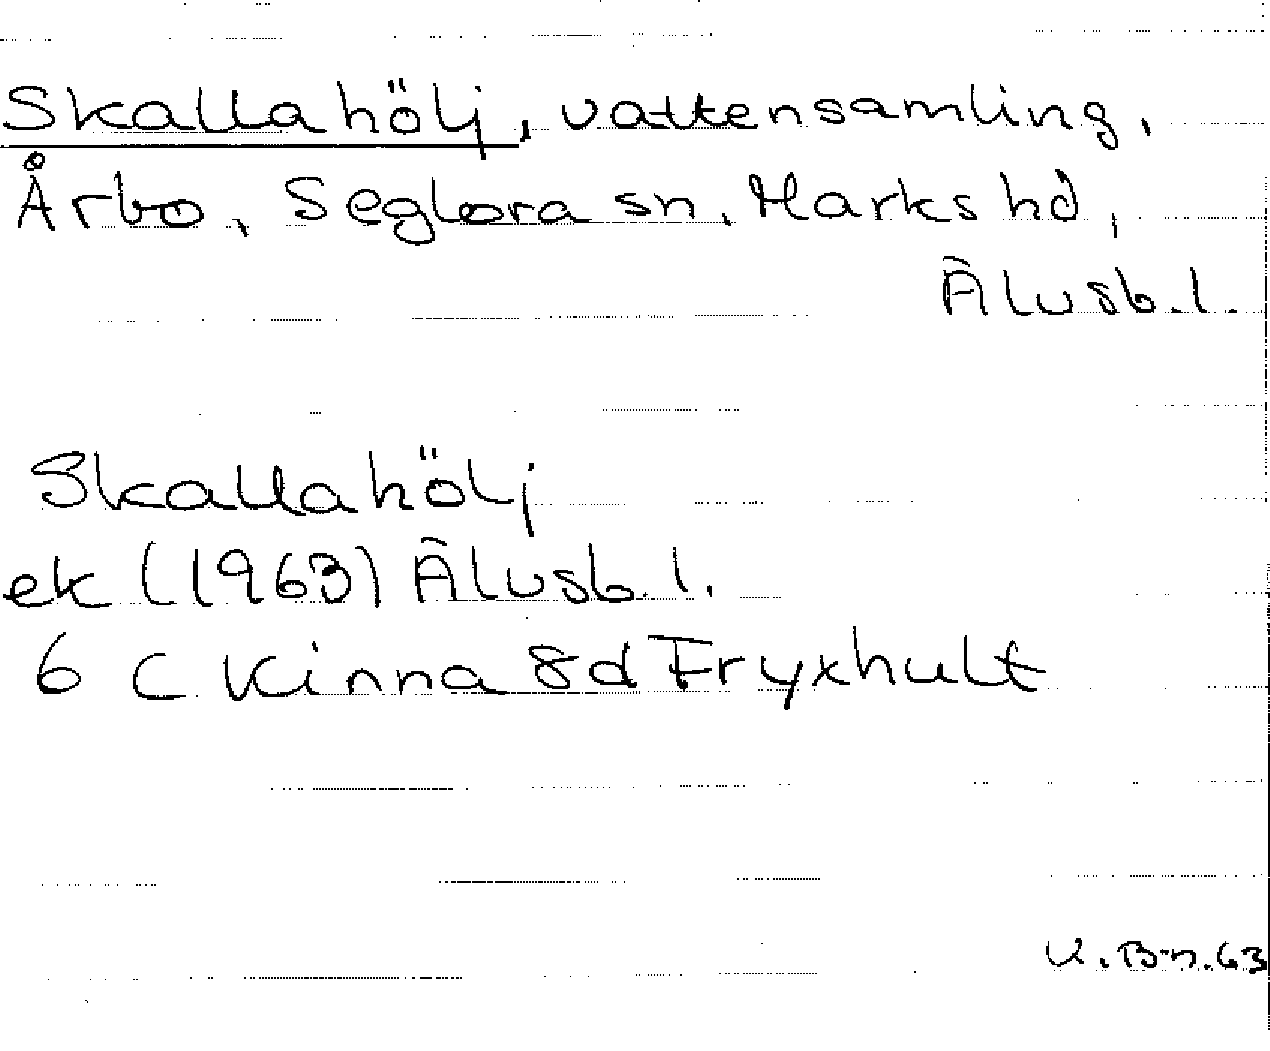 Skallahölj, vattensamling,
Årbo, Seglora sn, Marks hd,
Älvsb. l.
Skallahölj
ek (1963) Älvsb. l.
6 C Kinna 8d Fryxhult
K. B-n. 63